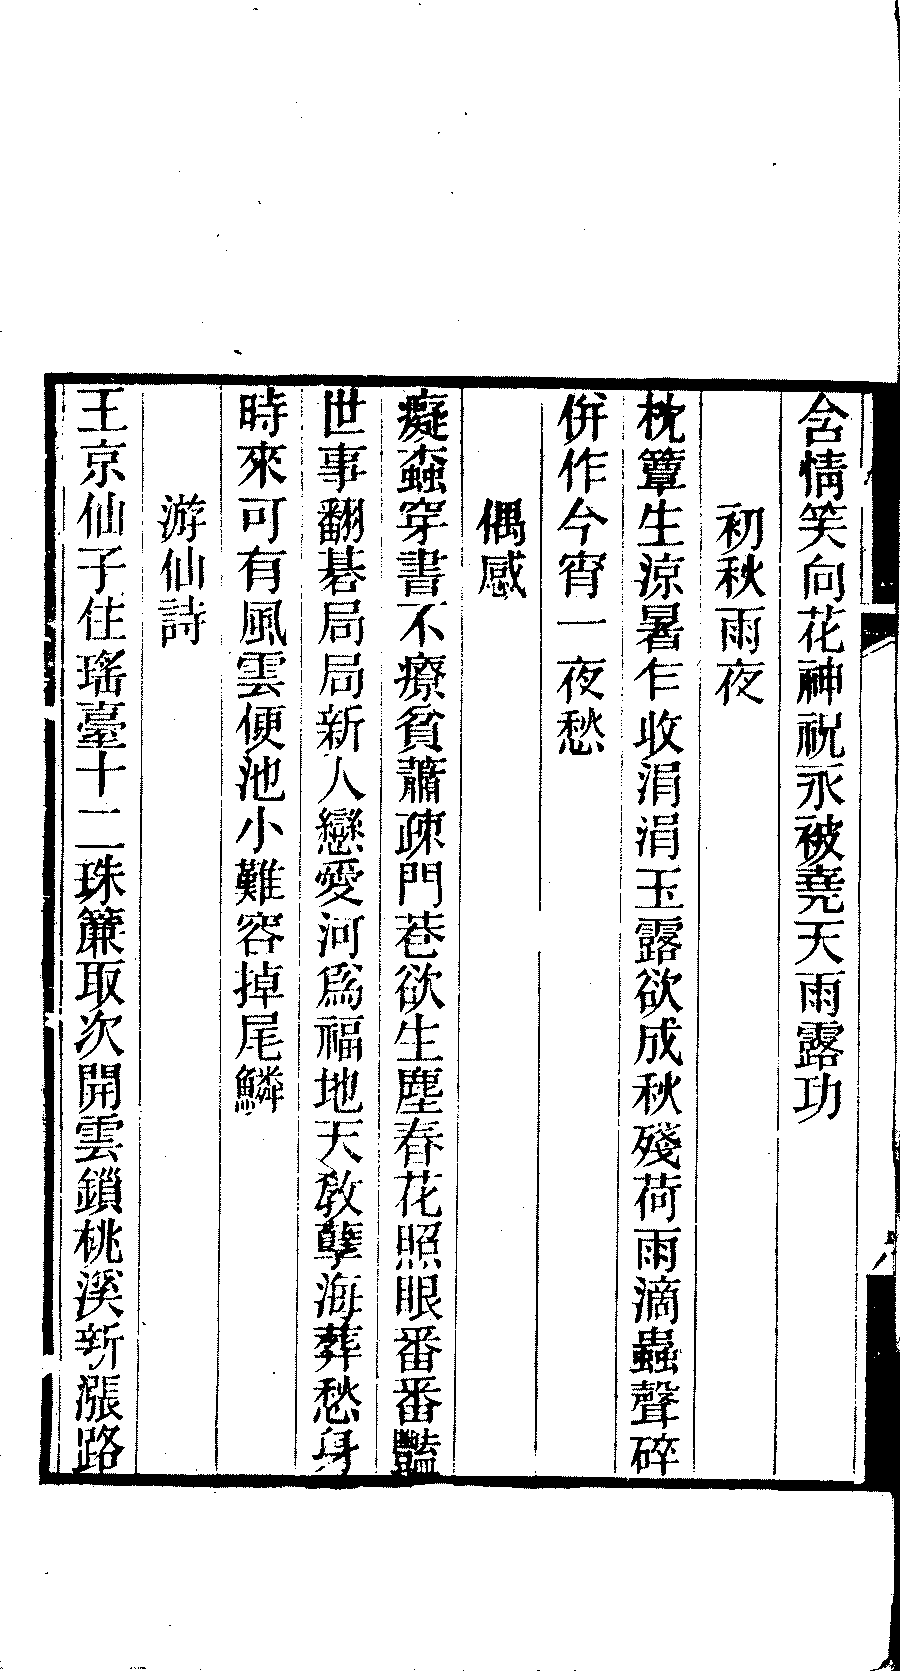 含情笑向花神祝永被堯天雨露功
初秋雨夜
枕簟生涼暑乍收涓涓玉露欲成秋殘荷雨滴蟲聲碎
併作今宵一夜愁
偶感
癡蟫穿書不療貧蕭疎門巷欲生塵春花照眼番番豔
世事翻碁局局新人戀愛河爲福地天教孽海葬愁身
時來可有風雲便池小難容掉尾鱗
游仙詩
王京仙子住瑤臺十二珠簾取次開雲鎖桃溪新漲路